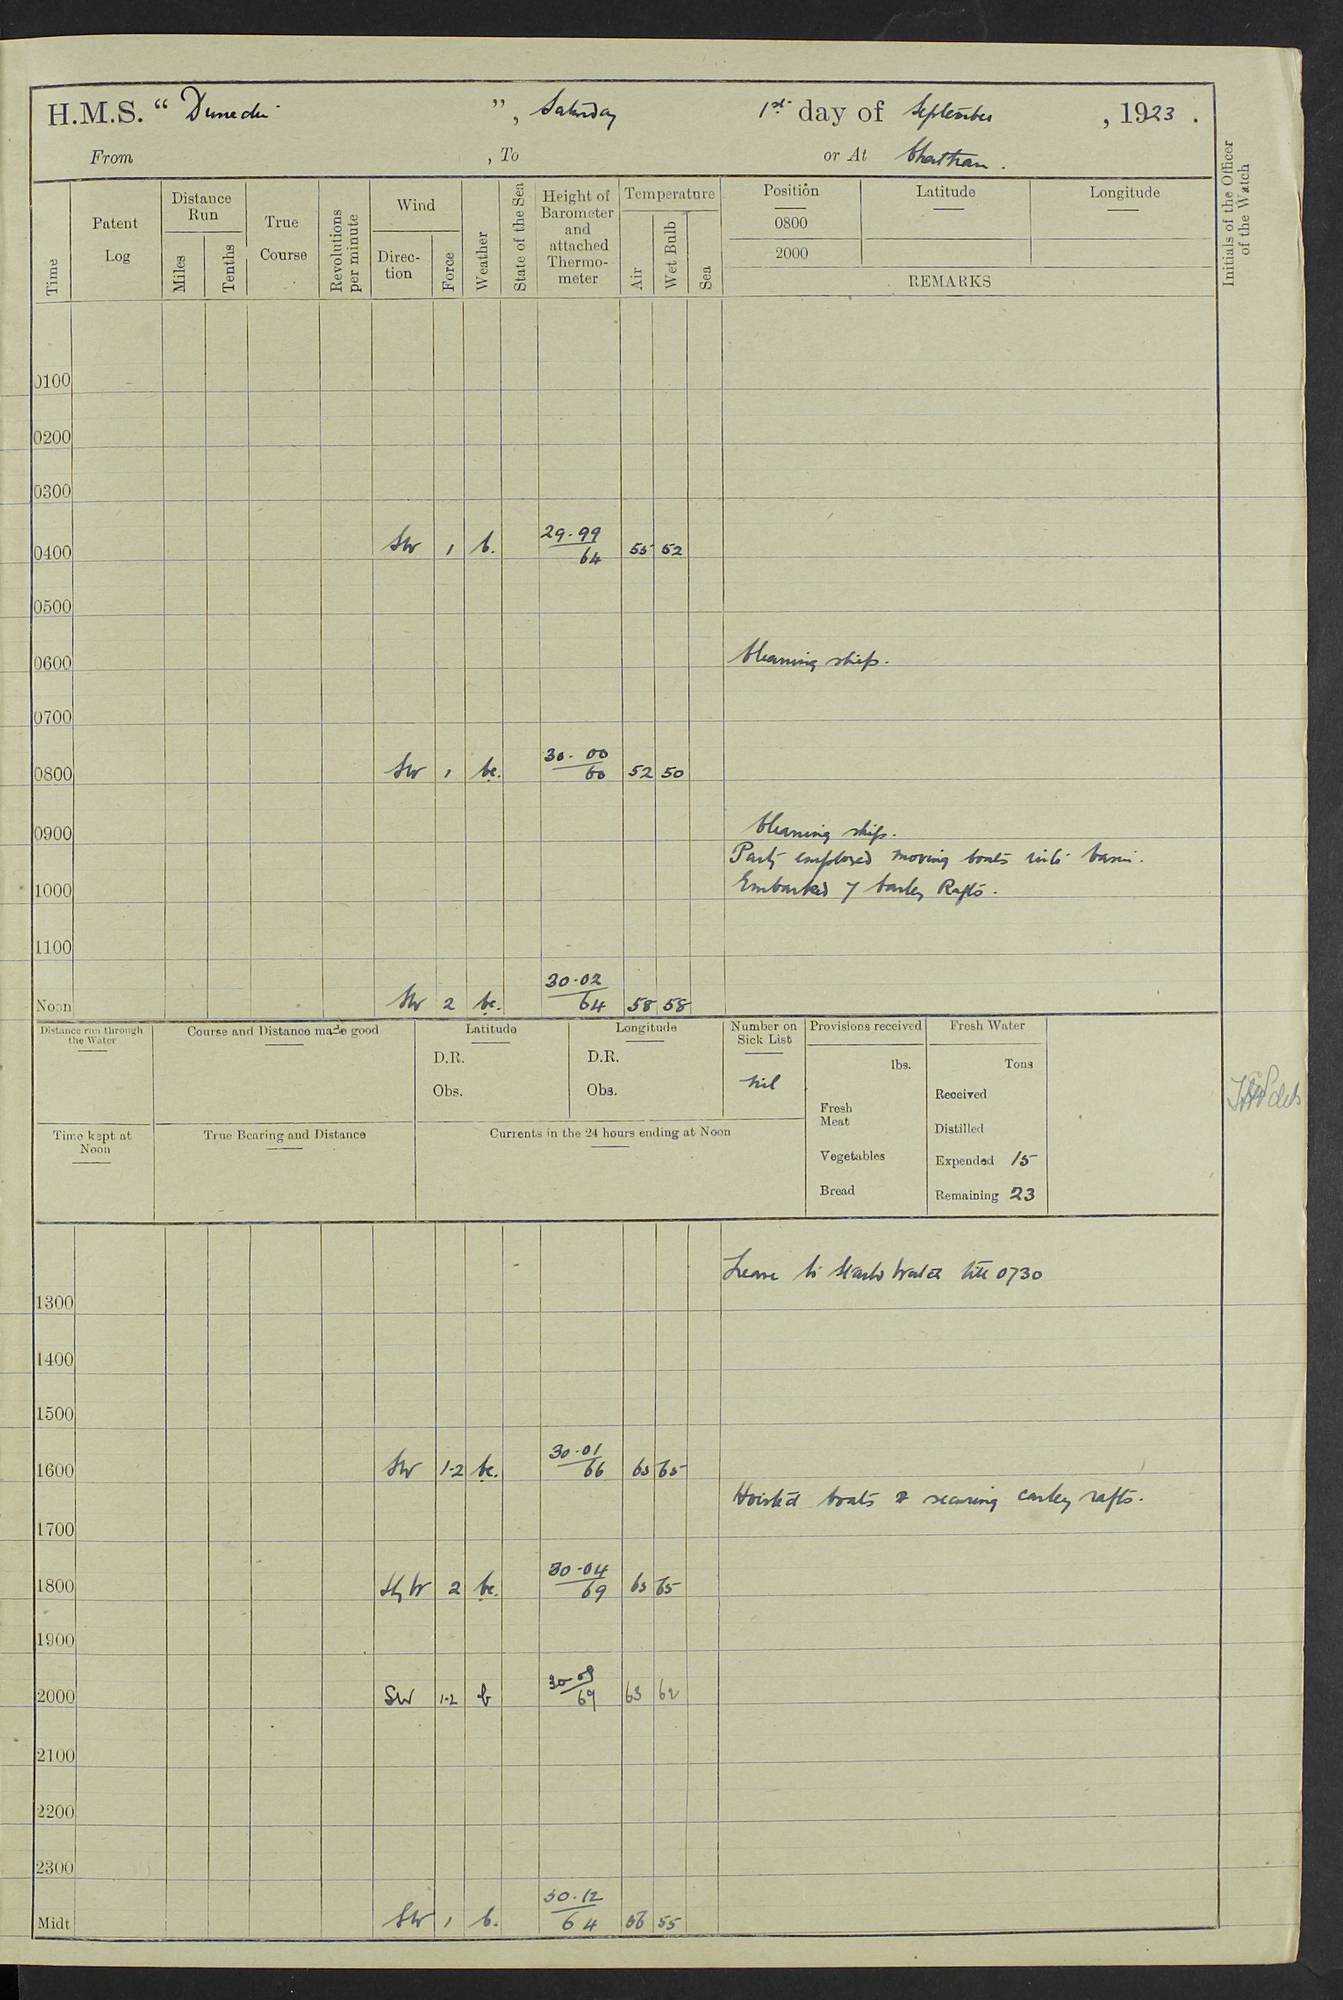 H.M.S. “ Dunedin ”, Saturday 1st day of September, 1923.
From , To or At Chatham.
Time
Patent Log
Distance Run
Miles
Tenths
True Course
Revolutions per minute
Wind
Direc-tion
Force
Weather
State of the Sea
Height of Barometer and attached Thermo-meter
Temperature
Air
Wet Bulb
Sea
Position Latitude Longitude
0800
2000
REMARKS
Initials of the Officer of the Watch
0100
0200
0300
0400 SW 1 b. 29.99/64 55 52
0500
0600 Cleaning ship.
0700
0800 SW 1 bc. 30.00/60 52 50
0900 Cleaning ship.
Party employed moving boats into basin.
1000 Embarked 7 Carley Rafts.
1100
Noon SW 2 bc. 30.02/64 58 58
Distance run through the Water
Course and Distance made good
Latitude
D.R.
Obs.
Longitude
D.R.
Obs.
Number on Sick List
Nil
Provisions received
lbs.
Fresh Meat
Vegetables
Bread
Fresh Water
Tons
Received
Distilled
Expended 15
Remaining 23
Time kept at Noon
True Bearing and Distance
Currents in the 24 hours ending at Noon
Leave to Starbd Watch till 0730
1300
1400
1500
1600 SW 1-2 bc. 30.01/66 65 65
Hoisted boats & securing carley rafts.
1700
1800 SbyW 2 bc. 30.04/69 65 65
1900
2000 SW 1-2 b 30.09/69 63 62
2100
2200
2300
Midt SW 1 b. 30.12/64 56 55